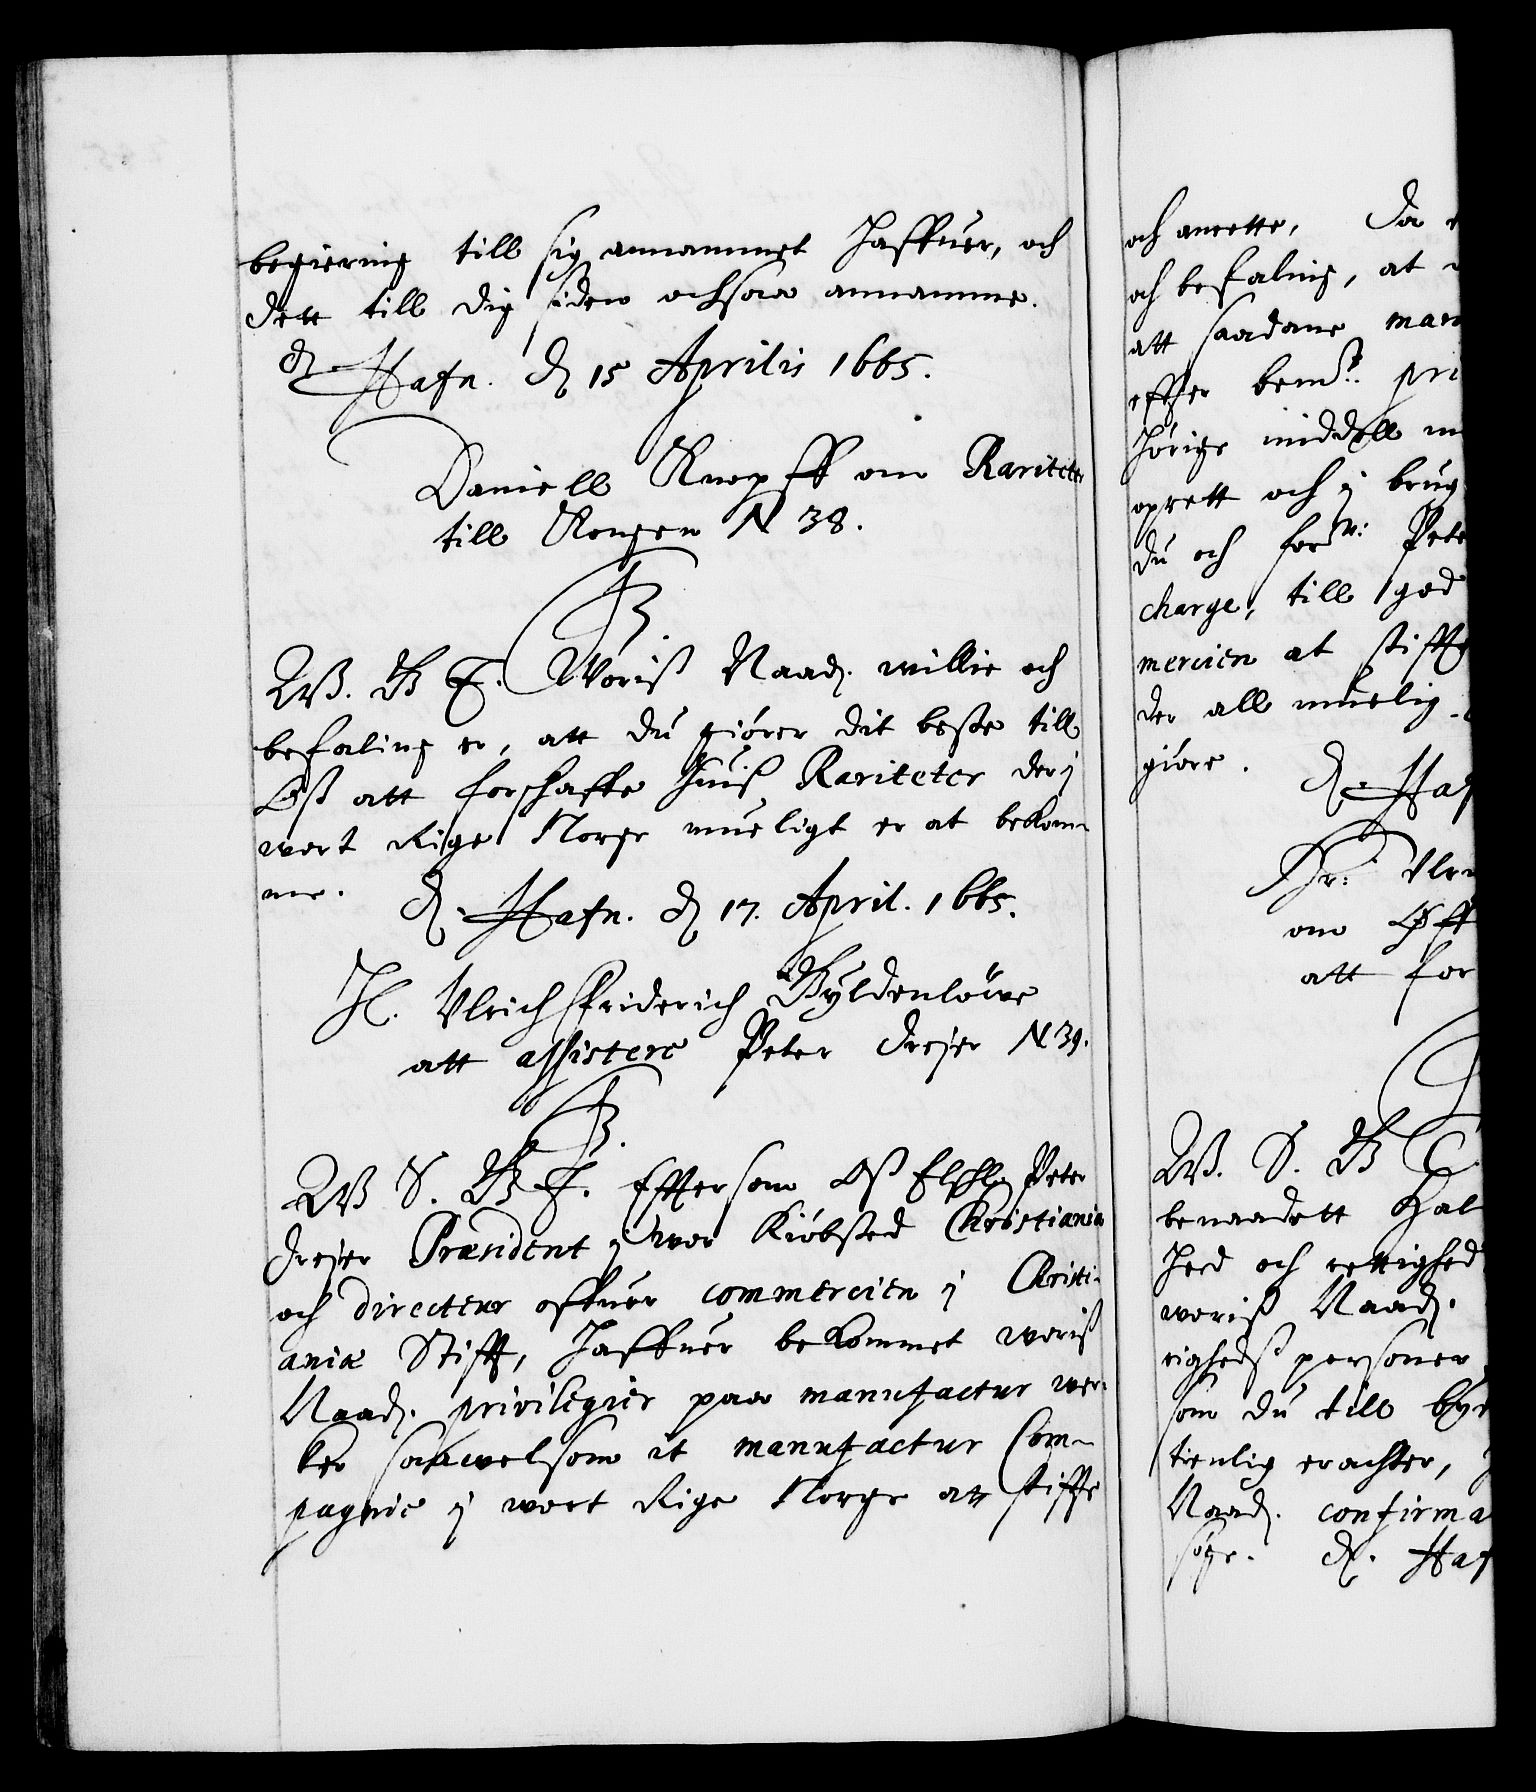 begiering till sig annammet haffuer, och
dett till dig siden ochsaa annamme.
D. Hafn. d 15 Aprilis 1665.
Daniell Knopff om Rariteter
till Kongen N 38.
F3.
WG. G T. Woriß Naad. willie och
befaling er, att du giörer dit beste till
Oß att forschaffe huiß Rariteter der j
wort Rige Norge mueligt er at bekom-
me. D. Hafn. d 17. April. 1665.
H. Vlrich Friderich Gyldenlöwe
att assistere Peter Dreier N 39.
F3.
WG S. G T. Effter som Oß Elschl. Peter
Dreier Præsident j wor Kiöbsted Christiania
och directeur offuer commercien j Christi-
aniæ Stifft, haffuer bekommet woriß
Naad. privilegier paa manufactur wer-
ker saa welsom it manufactur Com-
pagnie j wort Rige Norge att stiffte
och anrette, Da
och befaling, at
att saadane man
effter bemte. pri
hörige middell
oprett och j brug
du och forn: Pete
charge, till god
mercien at stiffte
der all muelig
giöre. D. Haf
Hr: Vlri
om
att for
WG. S. G T
benaadett Hal
hed och rettighed
woriß Naad.
righedß personer
som du till bye
tienlig erachter,
Naad. confirma
söge. D. Haf